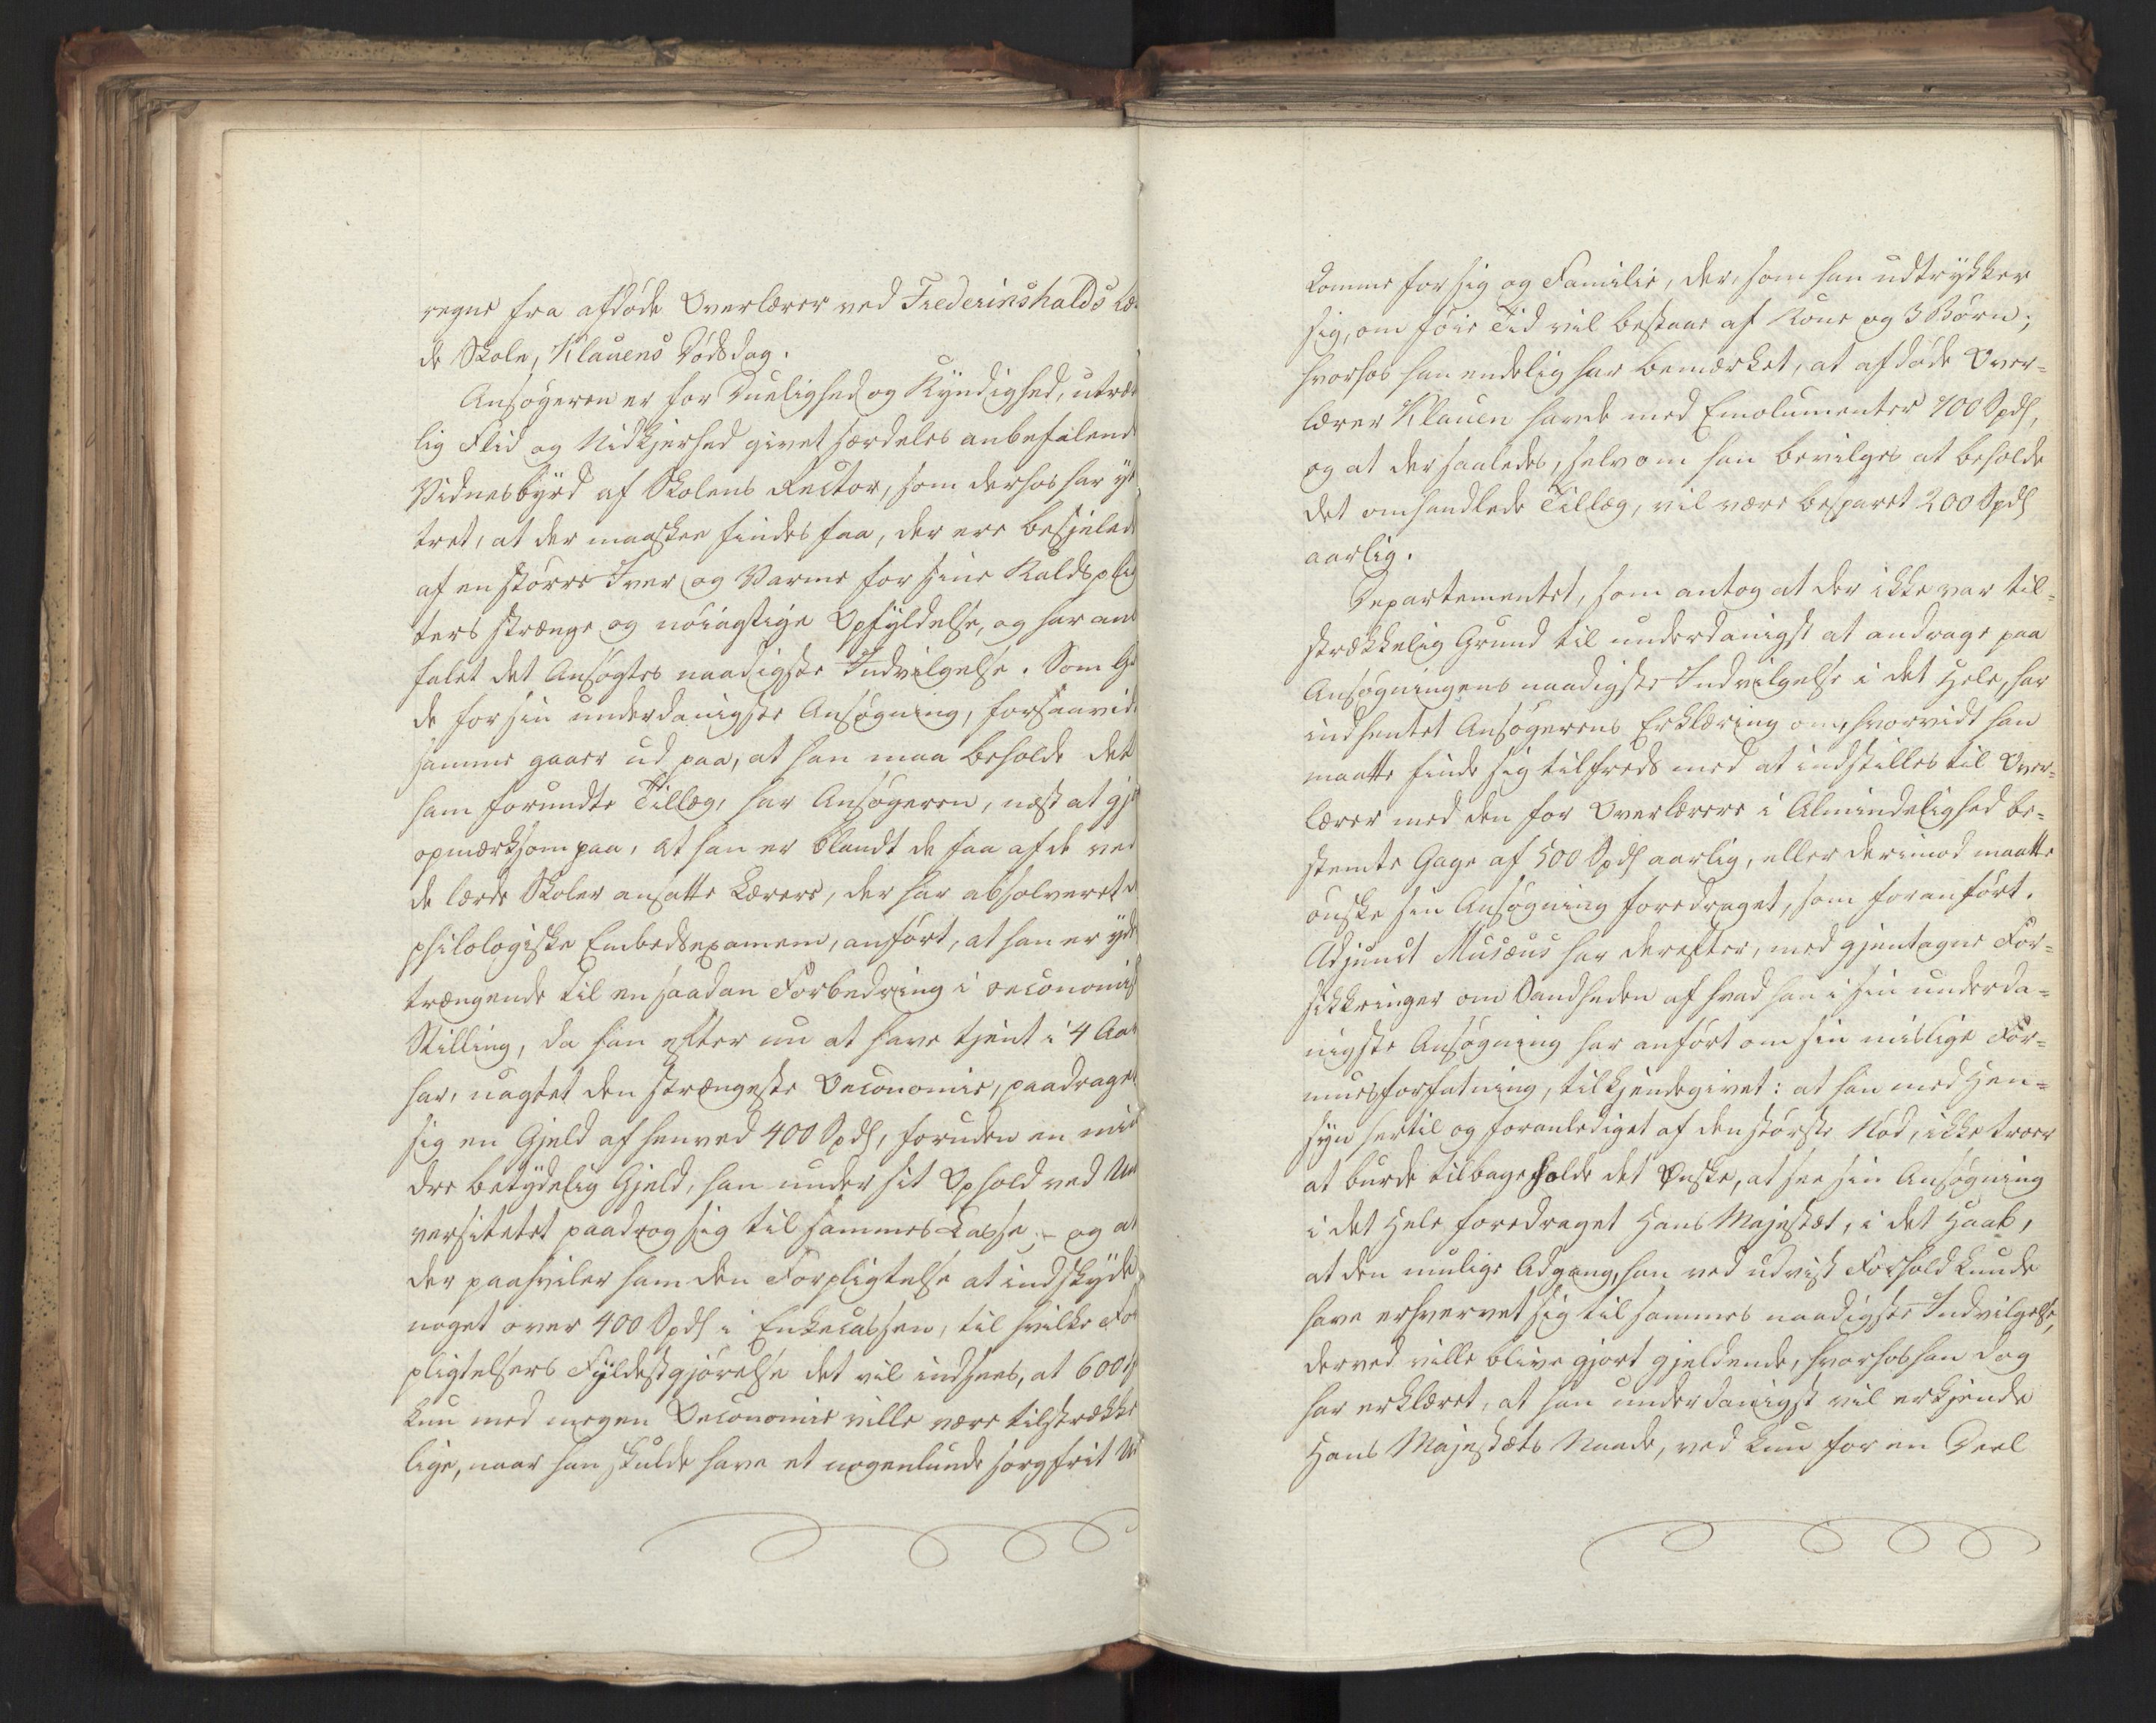 regne fra afdøde Overlærer ved Fredericshalds lær
de Skole, Klauens Dødsdag.
Ansøgeren er for Duelighed og Kyndighed, utræt
lig Flid og Nidkjerhed givet særdeles anbefalende
Vidnesbyrd af Skolens Rector, som derhos har yt
tret, at der maaskee findes faa, der ere besjælede
af en større Iver og Varme for sine Kaldsplig
ters strænge og nøiagtige Opfyldelse, og har anbe
falet det Ansøgtes naadigste Indvilgelse. Som Grun
de for sin underdanigste Ansøgning, forsaavidt
samme gaaer ud paa, at han maa beholde det
ham forundte Tillæg, har Ansøgeren, næst at gjøre
opmærksom paa, at han er blandt de faa af de ved
de lærde Skoler ansatte Lærere, der har absolveret
philologiske Embedsexamen, anført, at han er yder
trængende til en saadan Forbedring i oeconomisk
Stilling, da han efter nu at have tjent i 4 Aar
har, uagtet den strængeste Oeconomie, paadraget
sig en Gjeld af henved 400 Spd, foruden en min
dre betydelig Gjeld, han under sit Ophold ved Uni
versitetet paadrog sig til sammes Casse; - og at
der paahviler ham den Forpligtelse at indskyde
noget over 400 Spd i Enkecassen, til hvilke For
pligtelsers Fyldestgjørelse det vil indsees, at 600 Spd
kun med megen Oeconomie ville være tilstrække
lige, naar han skulde have et nogenlunde sorgfrit Ud
komme for sig og Familie, der, som han udtrykker
sig, om føie Tid vil bestaae af Kone og 3 Børn;
hvorhos han endelig har bemærket, at afdøde Over=
lærer Klauen havde med Emolumenter 700 Spd,
og at der saaledes, selv om han bevilges at beholde
det omhandlede Tillæg, vil være besparet 200 Spd
aarlig.
Departementet, som antog at der ikke var til=
strækkelig Grund til underdanigst at andrage paa
Ansøgningens naadigste Indvilgelse i det Hele, har
indhentet Ansøgerens Erklæring om, hvorvidt han
maatte finde sig tilfreds med at indstilles til Over=
lærer med den for Overlærere i Almindelighed be=
stemte Gage af 500 Spd aarlig, eller derimod maatte
ønske sin Ansøgning foredraget, som foranført.
Adjunct Musæus har derefter, med gjentagne For=
sikkringer om Sandheden af hvad han i sin underda=
nigste Ansøgning har anført om sin mislige For=
muesforfatning, tilkjendegivet: at han med Hen=
syn hertil og foranlediget af den største Nød, ikke troer
at burde tilbageholde det Ønske, at see sin Ansøgning
i det Hele foredraget Hans Majestæt, i det Haab,
at den mulige Adgang, han ved udvist Forhold kunde
have erhvervet sig til sammes naadigste Indvilgelse,
derved ville blive gjort gjeldende, hvorhos han dog
har erklæret, at han underdanigst vil erkjende
Hans Majestæts Naade, ved kun for en Deel